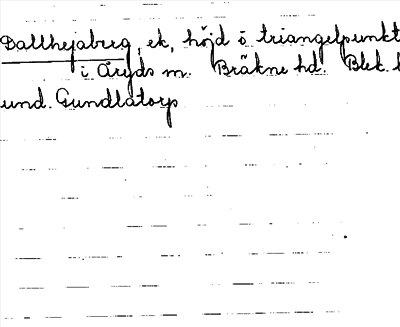 Dallhejaberg, ek, höjd o triangelpunkt
i Åryds sn. Bräkne hd. Blek. l
und. Gundlatorp